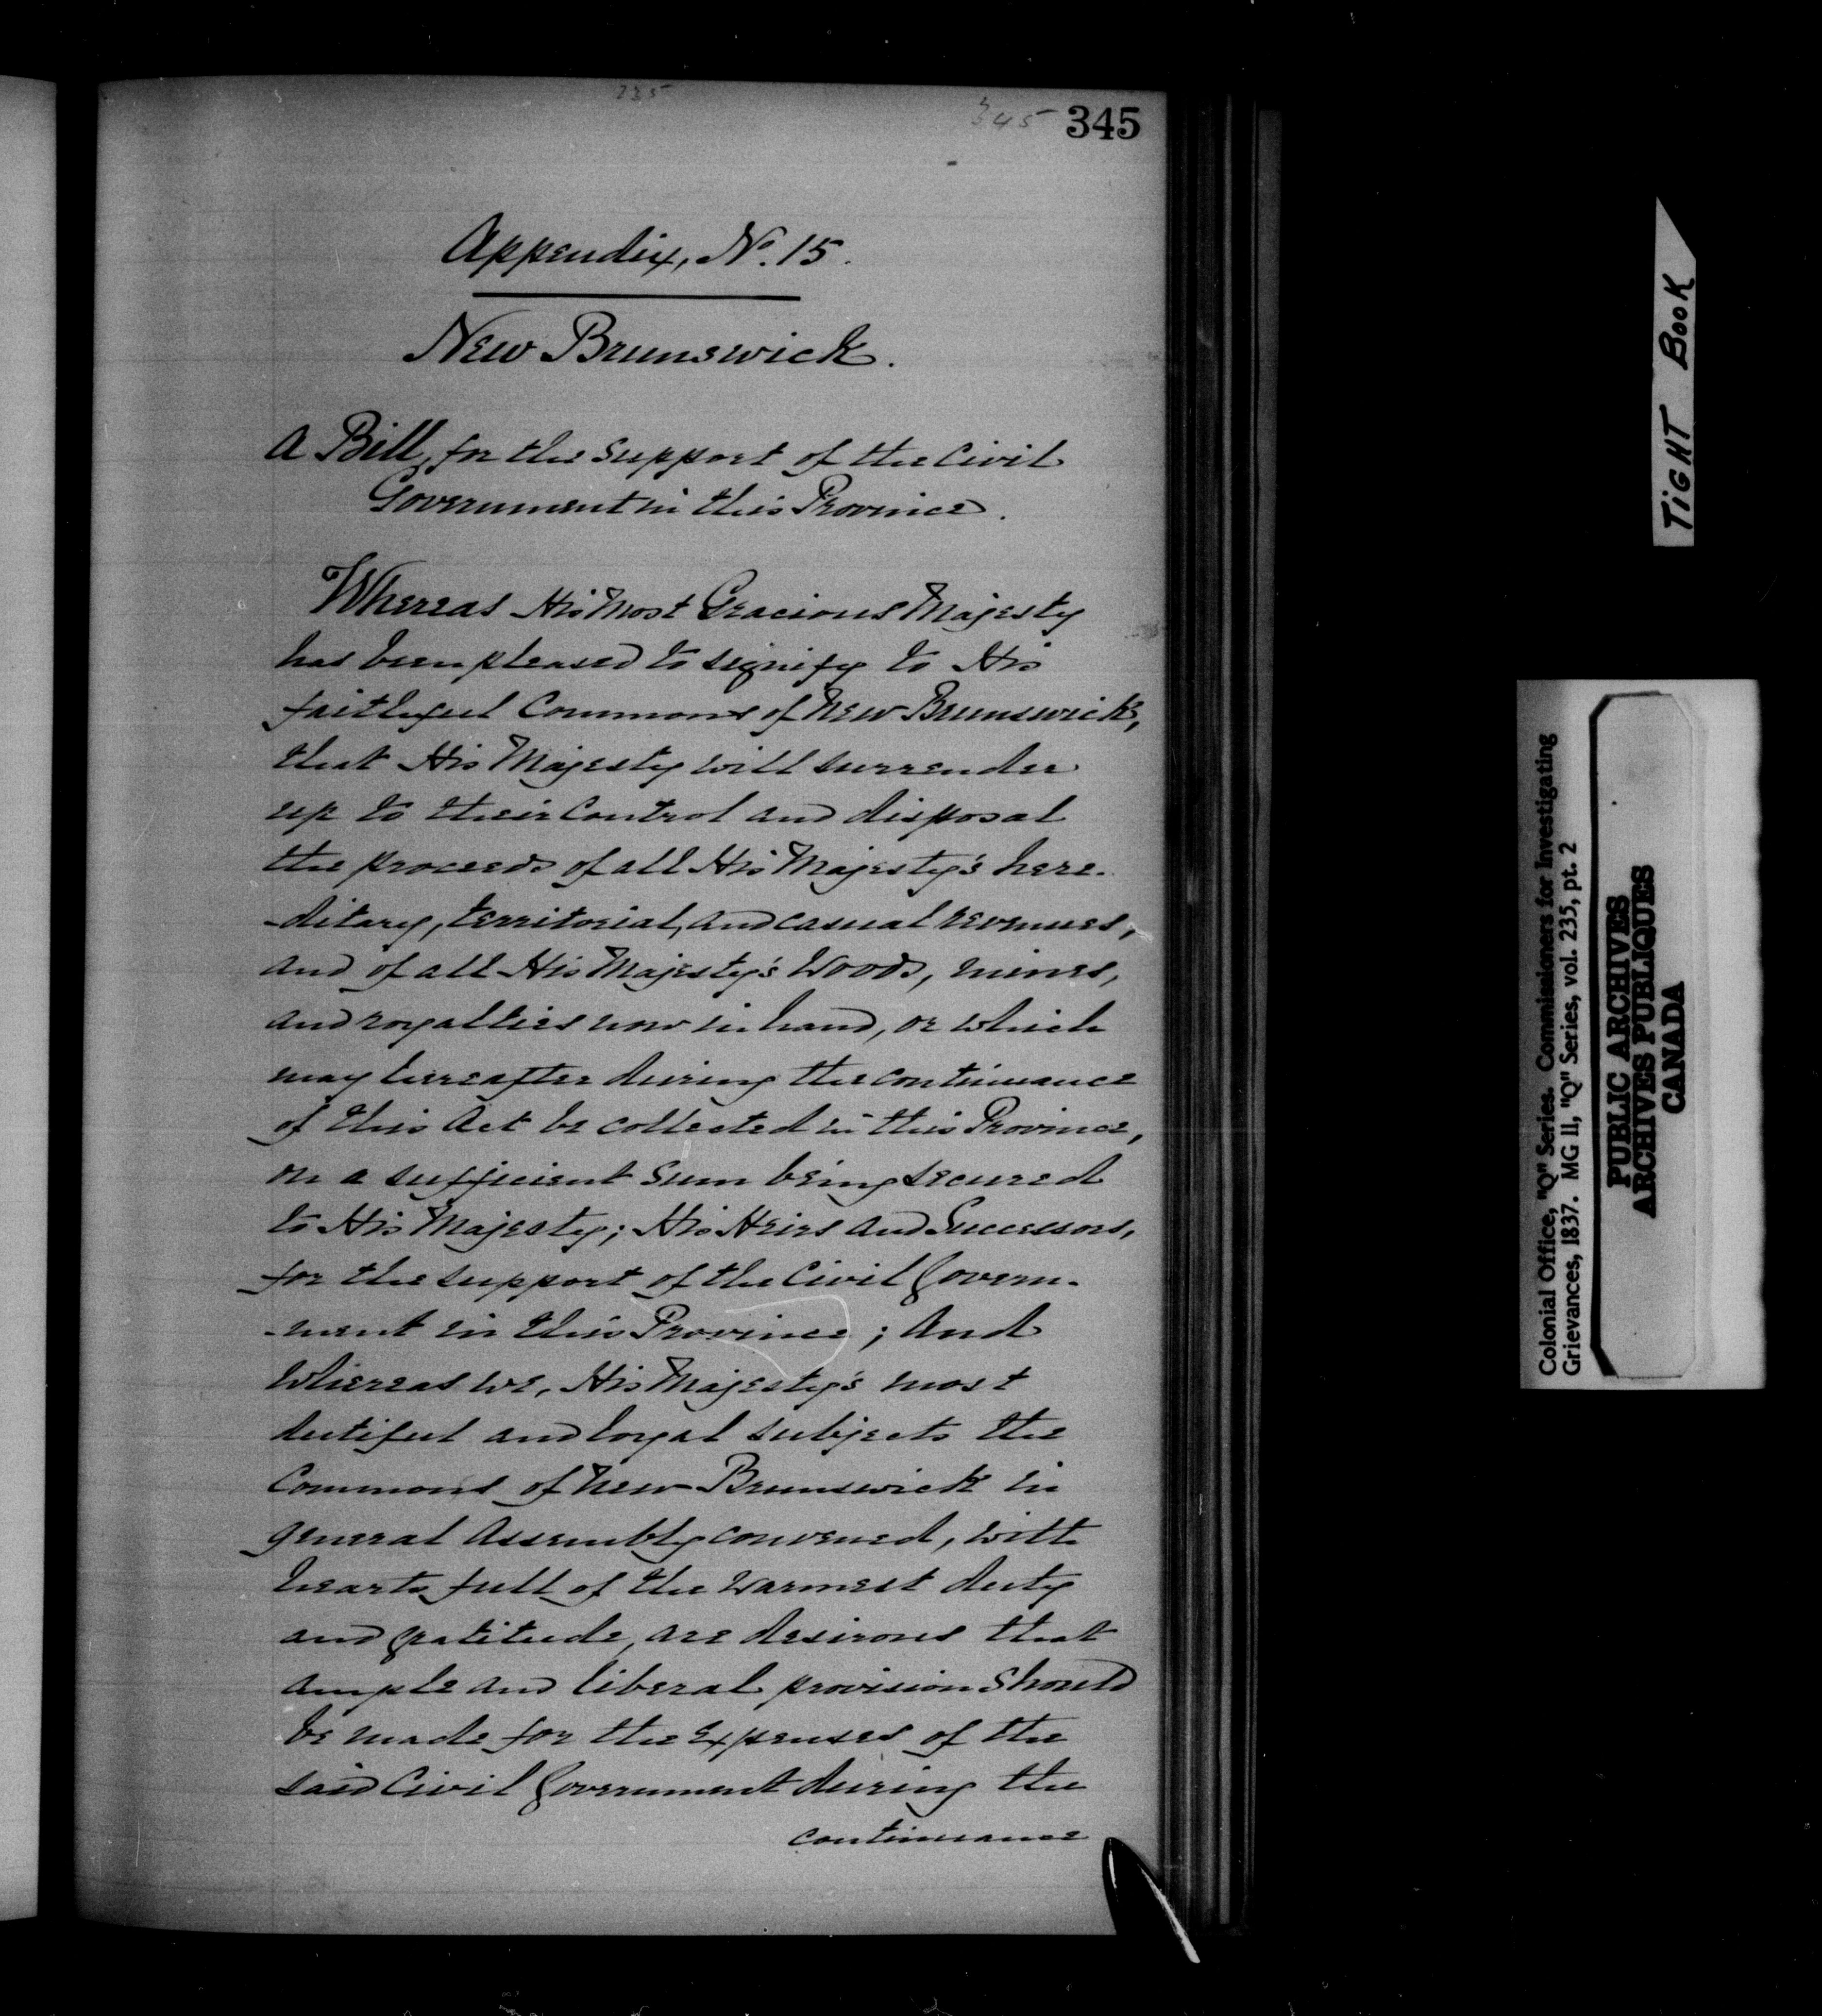 235
345 345
Appendix, No. 15.
New Brunswick.
A Bill, for the support of the Civil
Government in this Province.
Whereas His Most Gracious Majesty
has been pleased to signify to His
faithful Commons of New Brunswick,
that His Majesty will surrender
up to their control and disposal
the proceeds of all His Majesty's here-
-ditary, territorial, and casual revenues,
and of all His Majesty's Woods, mines,
and royalties now in hand, or which
may hereafter during the continuance
of this Act be collected in this Province,
on a sufficient sum being secured
to His Majesty; His Heirs and Successors,
for the support of the Civil Govern-
-ment in this Province; And
Whereas we, His Majesty's most
dutiful and loyal subjects the
Commons of New Brunswick in
general Assembly convened, with
hearts full of the warmest duty
and gratitude, are desirous that
ample and liberal provision should
be made for the expenses of the
said Civil Government during the
continuance
TIGHT BOOK
Colonial Office, "Q" Series. Commissioners for Investigating
Grievances, 1837. MG 11, "Q" Series, vol. 235, pt. 2
PUBLIC ARCHIVES
ARCHIVES PUBLIQUES
CANADA